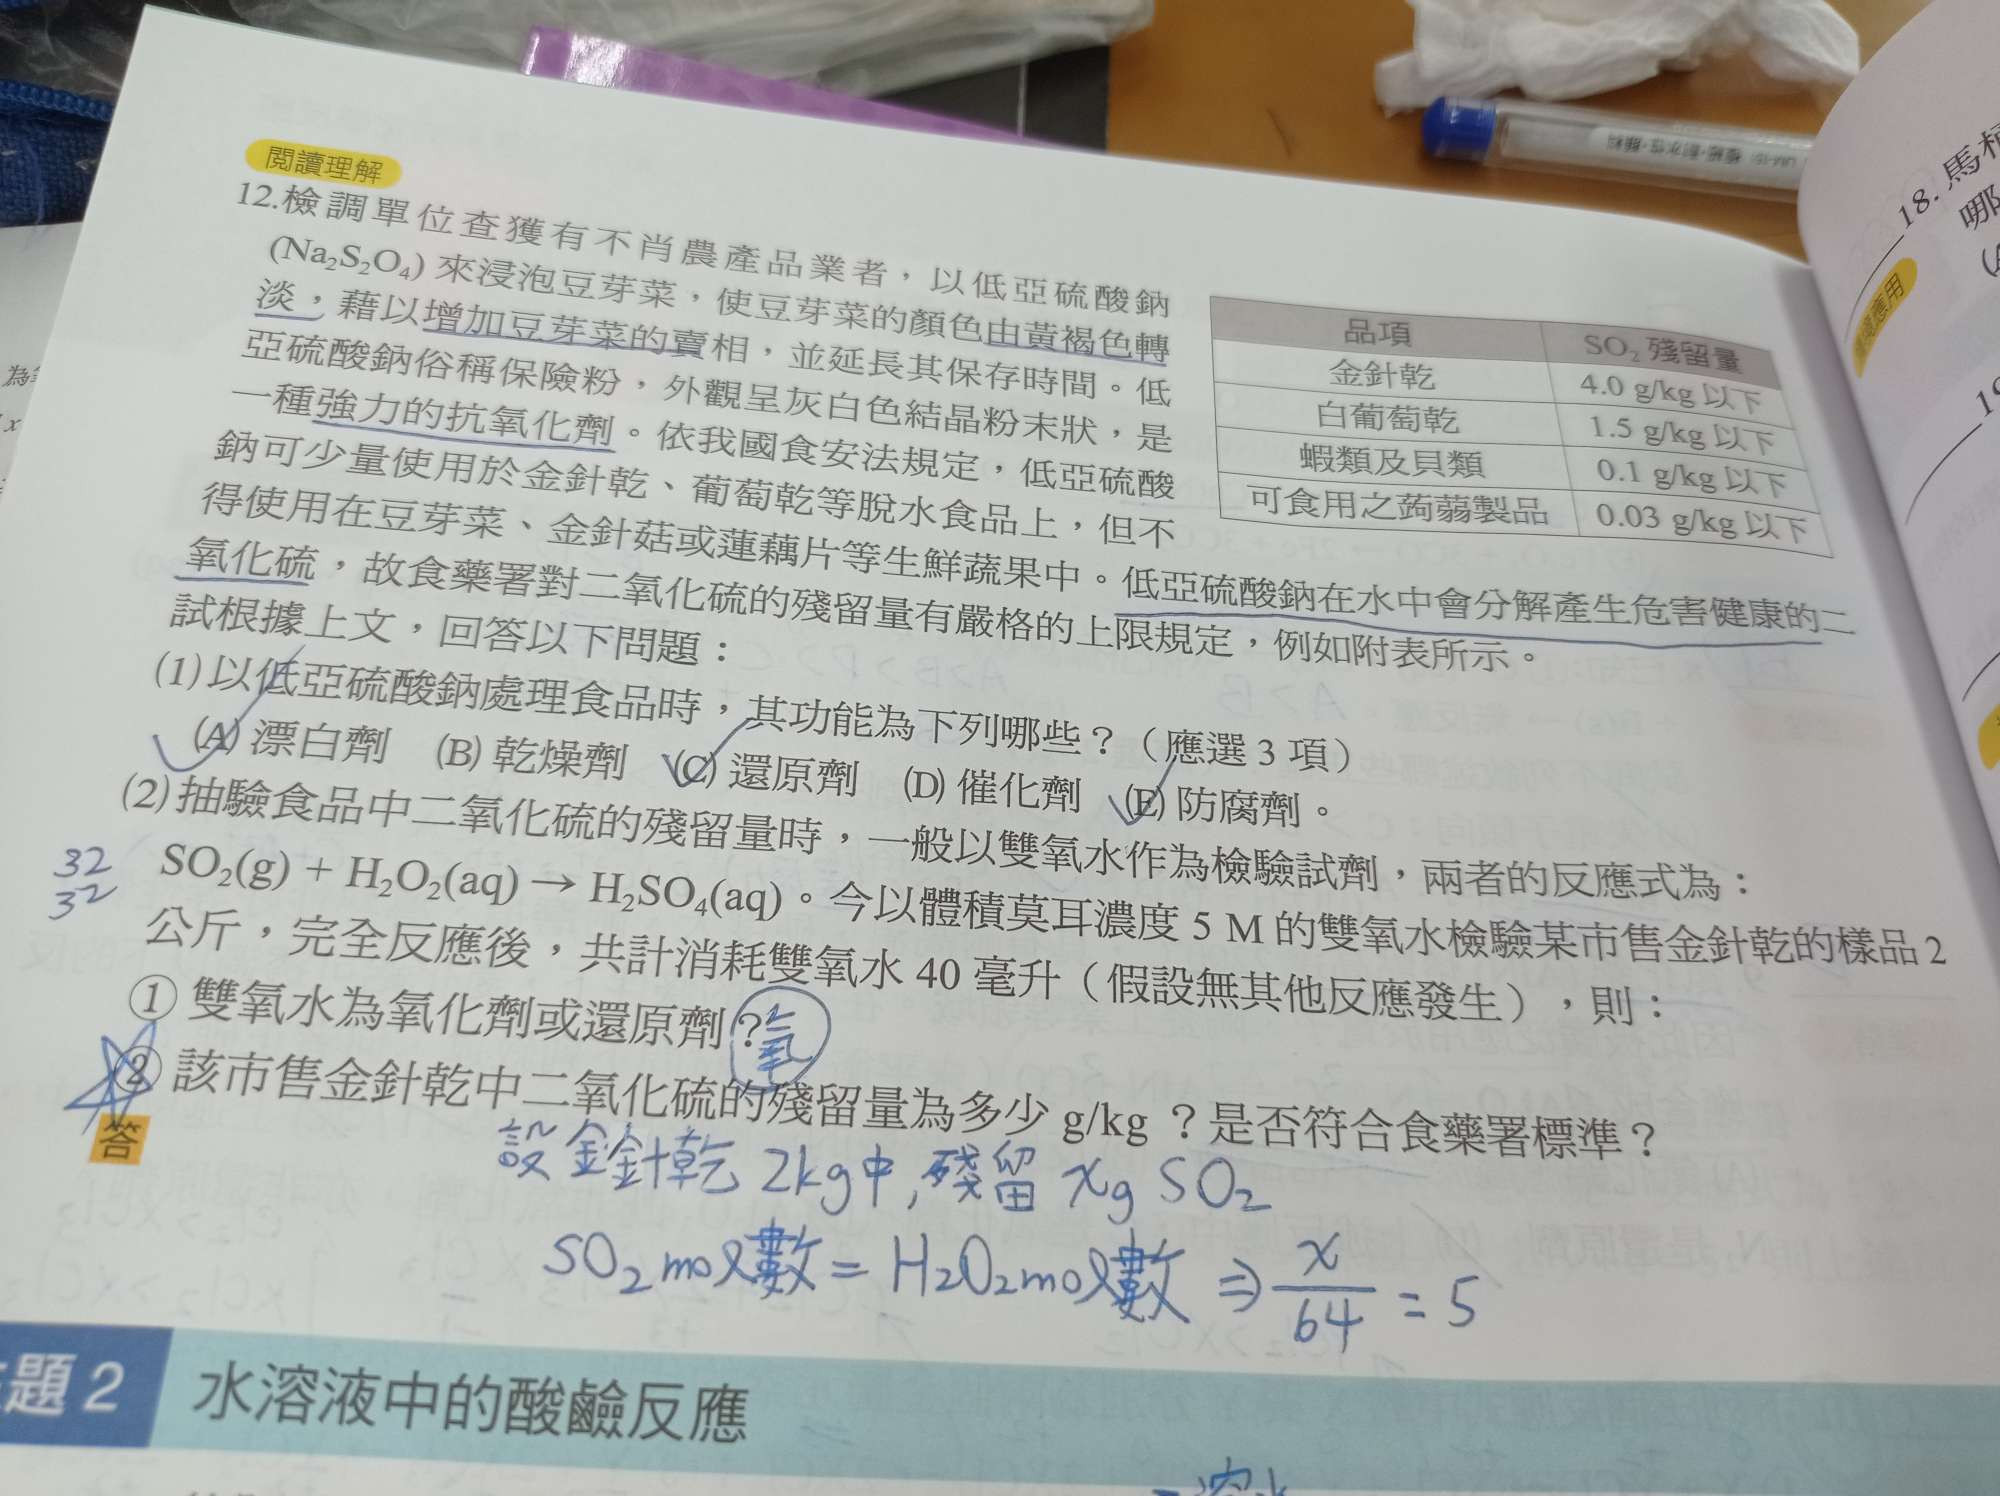 閱讀理解
12.檢調單位查獲有不肖農產品業者，以低亞硫酸鈉
(Na₂S₂O₄) 來浸泡豆芽菜，使豆芽菜的顏色由黃褐色轉
淡，藉以增加豆芽菜的賣相，並延長其保存時間。低
亞硫酸鈉俗稱保險粉，外觀呈灰白色結晶粉末狀，是
一種強力的抗氧化劑。依我國食安法規定，低亞硫酸
鈉可少量使用於金針乾、葡萄乾等脫水食品上，但不
得使用在豆芽菜、金針菇或蓮藕片等生鮮蔬果中。低亞硫酸鈉在水中會分解產生危害健康的二
氧化硫，故食藥署對二氧化硫的殘留量有嚴格的上限規定，例如附表所示。
品項 SO₂ 殘留量
金針乾 4.0 g/kg 以下
白葡萄乾 1.5 g/kg 以下
蝦類及貝類 0.1 g/kg 以下
可食用之蒟蒻製品 0.03 g/kg 以下
試根據上文，回答以下問題：
(1)以低亞硫酸鈉處理食品時，其功能為下列哪些？（應選 3 項）
(A) 漂白劑 (B) 乾燥劑 (C) 還原劑 (D) 催化劑 (E) 防腐劑。
(2)抽驗食品中二氧化硫的殘留量時，一般以雙氧水作為檢驗試劑，兩者的反應式為：
32
32
SO₂(g) + H₂O₂(aq) → H₂SO₄(aq)。今以體積莫耳濃度 5 M 的雙氧水檢驗某市售金針乾的樣品 2
公斤，完全反應後，共計消耗雙氧水 40 毫升（假設無其他反應發生），則：
① 雙氧水為氧化劑或還原劑？氧
② 該市售金針乾中二氧化硫的殘留量為多少 g/kg ？是否符合食藥署標準？
答
設金針乾 2kg中,殘留 xg SO₂
SO₂mol數 = H₂O₂mol數 ⇒ x/64 = 5
題 2 水溶液中的酸鹼反應
18. 馬
哪
應用